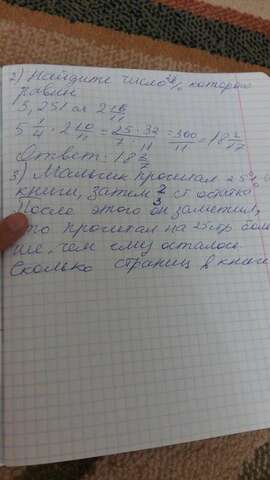 2) Найдите число % которого
равны
5,25 1 см 2 10/11
5 1/4 · 2 10/11 = 25 · 32 / 7 · 11 = 300/11 = 18 2/17
Ответ: 18 2/7
3) Мальчик прочитал 25%
книги, затем 2/3 ст остатка
После этого он заметил,
что прочитал на 25 стр боль
ше, чем ему осталось
сколько страниц в книге